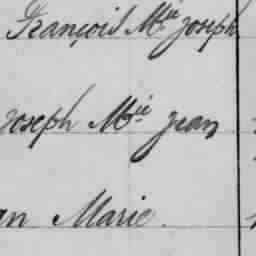 François Mie joseph
joseph Mie jean
an Marie.